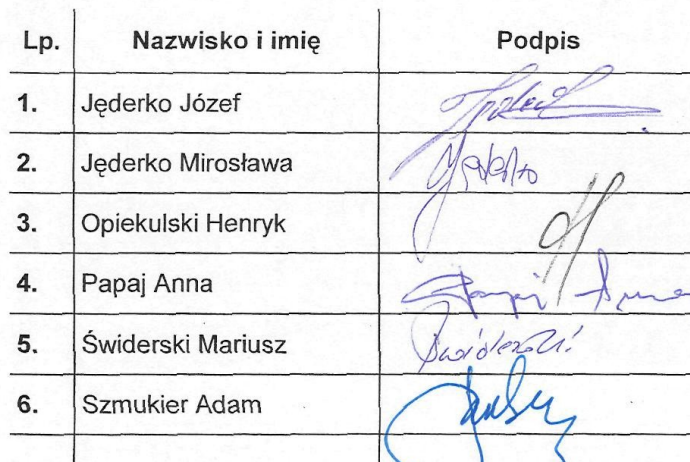 Lp. Nazwisko i imię Podpis
1. Jęderko Józef
2. Jęderko Mirosława Jęderko
3. Opiekulski Henryk
4. Papaj Anna Papaj Anna
5. Świderski Mariusz Świderski
6. Szmukier Adam